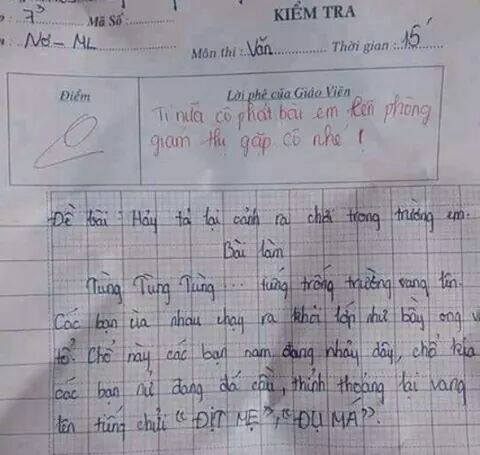 KIỂM TRA
7³ Mã Số:
Nơ - ML
Môn thi: Văn Thời gian: 15'
Điểm
Lời phê của Giáo Viên
Tí nữa cô phát bài em lên phòng
giám thị gặp cô nhé!
Đề bài: Hãy tả lại cảnh ra chơi trong trường em.
Bài làm
Tùng Tùng Tùng... tiếng trống trường vang lên.
Các bạn ùa nhau chạy ra khỏi lớp như bầy ong v
tổ. Chổ này các bạn nam đang nhảy dây, chổ kia
các bạn nữ đang đá cầu, thỉnh thoảng lại vang
lên tiếng chửi "ĐỊT MẸ", "ĐỤ MÁ".